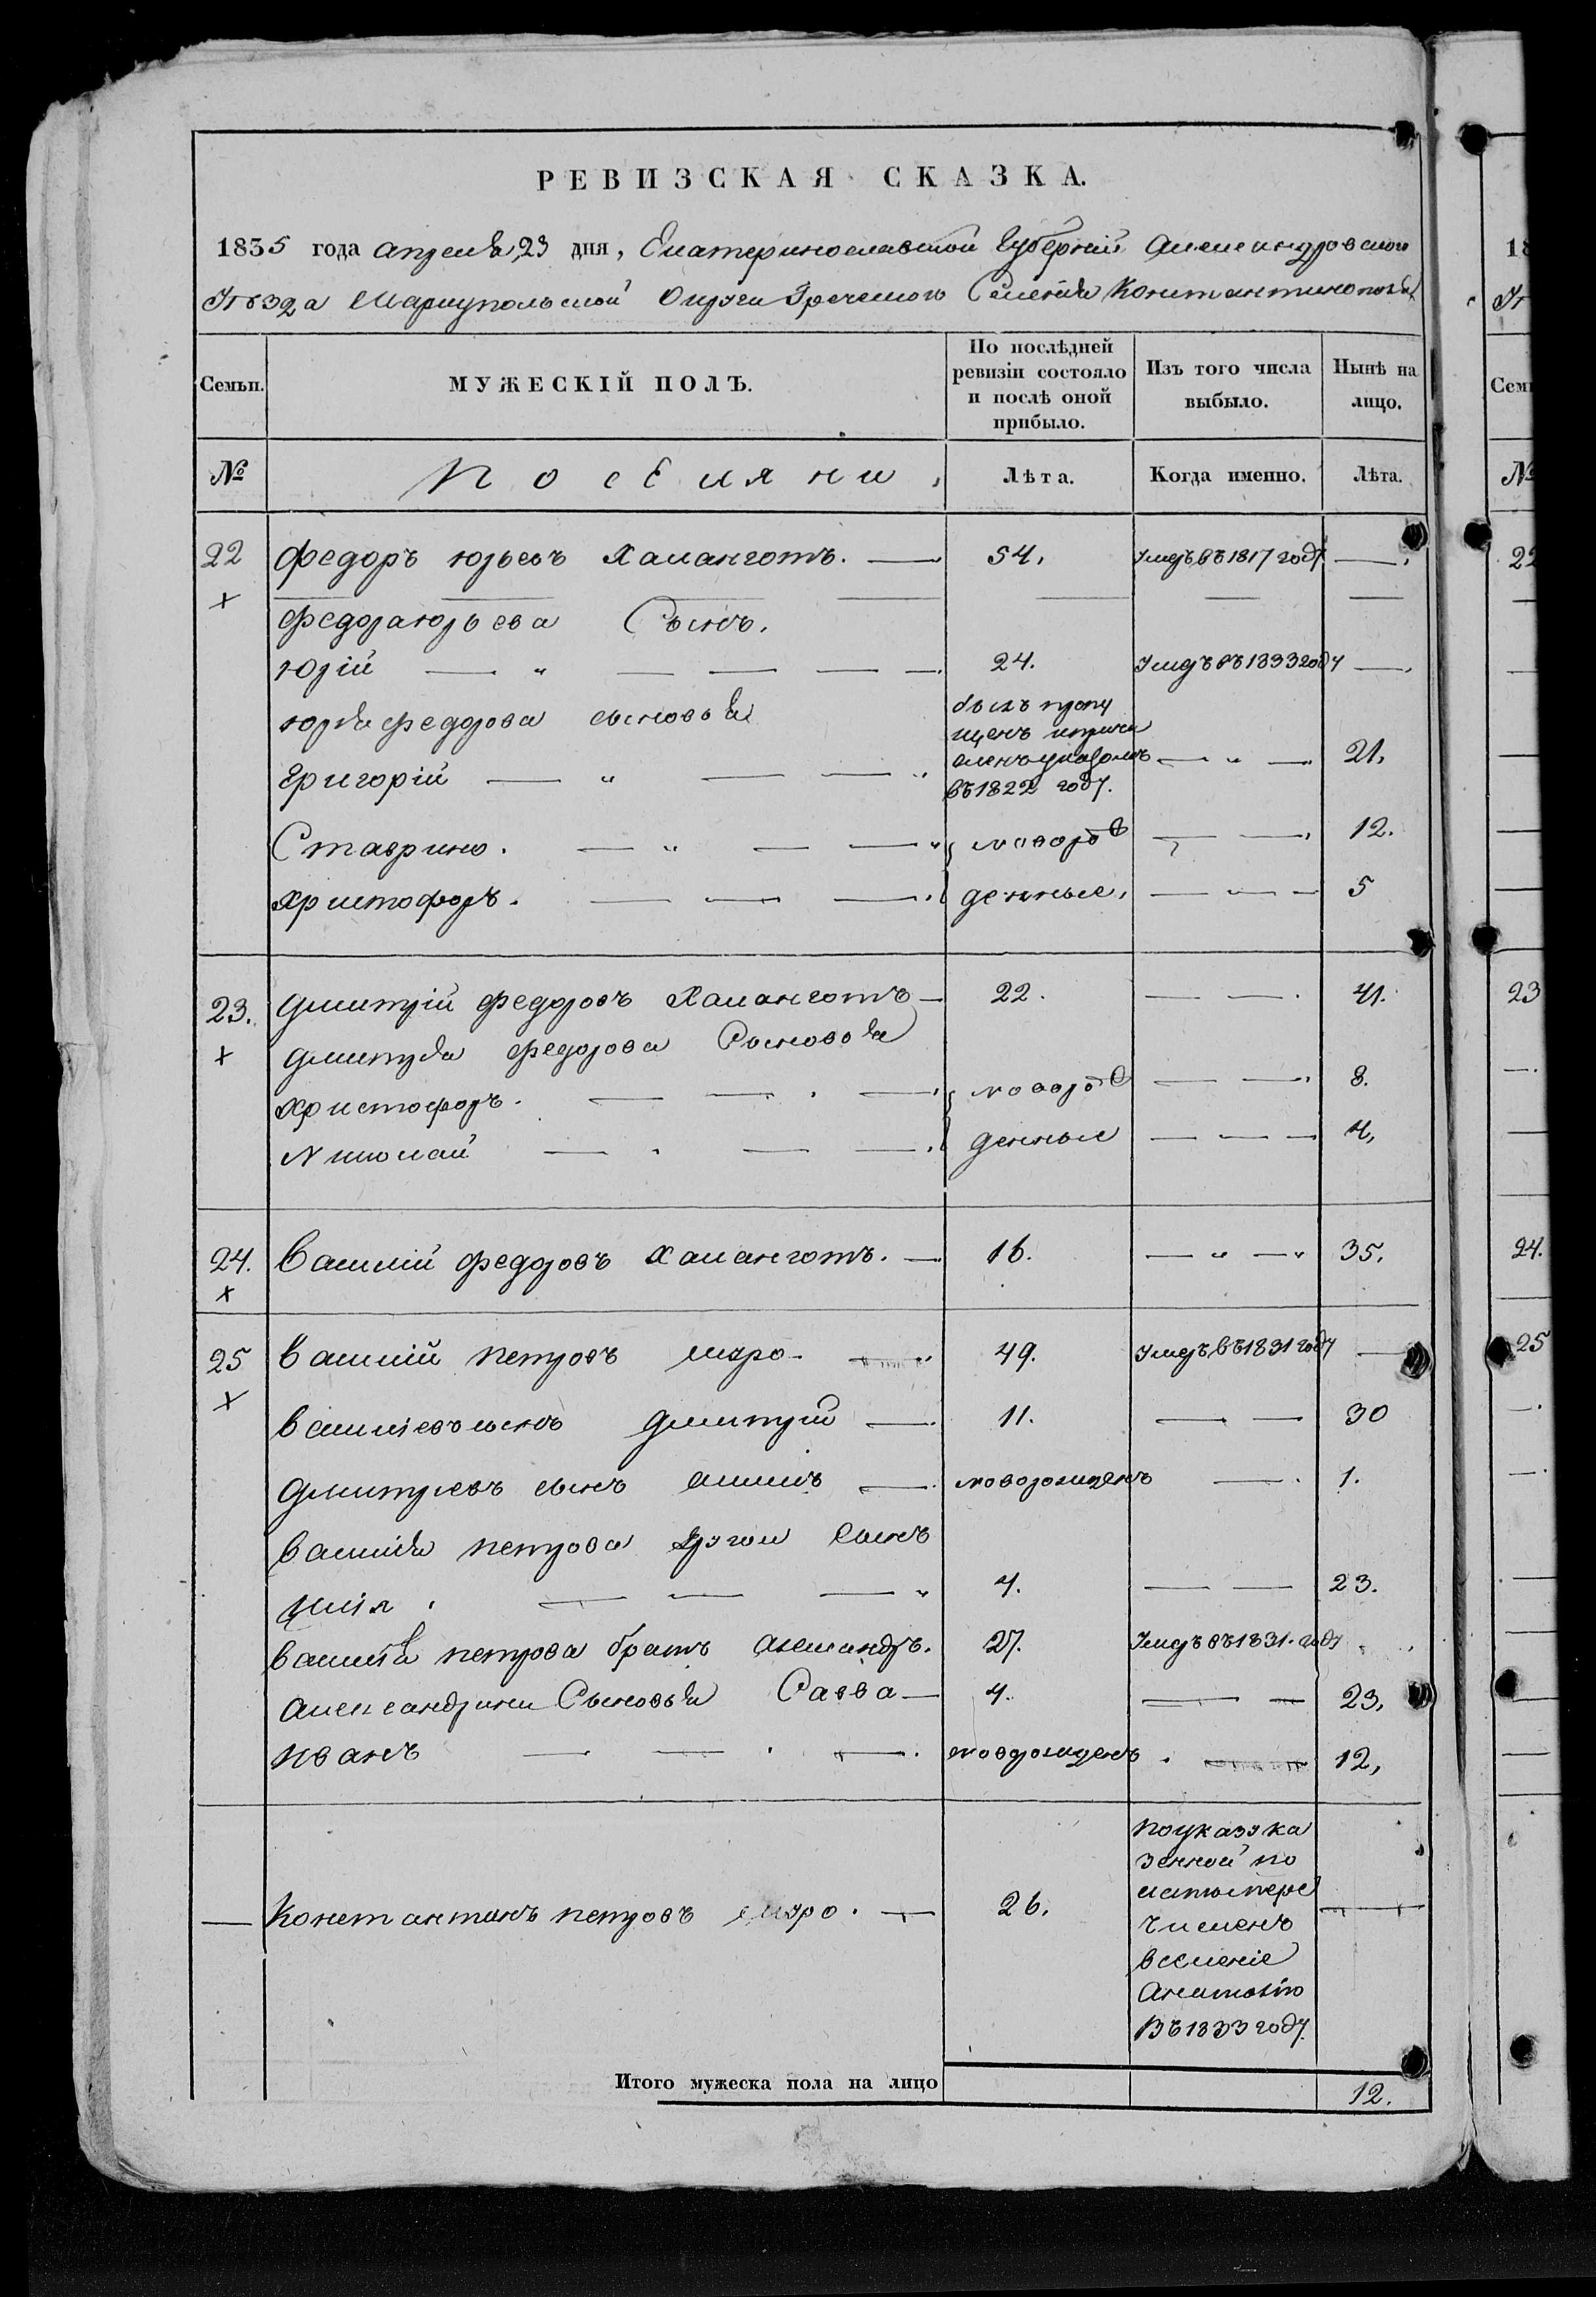 РЕВИЗСКАЯ СКАЗКА.
1835 года апреля 23 дня, Екатеринославской Губерніи Александровского
Уѣзда Мариупольской Округи Греческого Селенія Константинополя
Семьи.
МУЖЕСКІЙ ПОЛЪ.
По послѣдней ревизіи состояло и послѣ оной прибыло.
Изъ того числа выбыло.
Нынѣ на лицо.
№ Поселяни, Лѣта. Когда именно. Лѣта.
22 Федоръ юрьевъ Халанготъ. — 54. Умръ въ 1817 году —
Федора юрьева Сынъ.
юрій — „ — 24. Умръ въ 1833 году —
юрія федорова сыновья
Григорій — „ — былъ пропущенъ и причисленъ указомъ въ 1822 году. — „ — 21.
Ставрино. — „ — новорож — 12.
Христофоръ. — денные, — 5
23. Дмитрій федоровъ Халанготъ — 22. — 41.
Дмитрія федорова Сыновья
Христофоръ. — новорож — 8.
Николай — денные — 4,
24. Василій федоровъ Халанготъ. — 16. — „ — 35.
25 Василій петровъ — 49. Умръ въ 1831 году —
Василіевъ сынъ Дмитрій — 11. — 30
Дмитріевъ сынъ — новорожденъ — 1.
Василія петрова другой Сынъ
Илія. — 4. — 23.
Василія петрова братъ александръ. 27. Умръ въ 1831. году
Александрини Сыновья Савва — 4. — 23,
Иванъ — новорожденъ. — 12,
— Константинъ петровъ — 26.
По указу ка
зенной по
латы пере
численъ
въ селеніе
Въ 1833 году
Итого мужеска пола на лицо 12.
18
Уѣ
Семь
№
22
23
24.
25